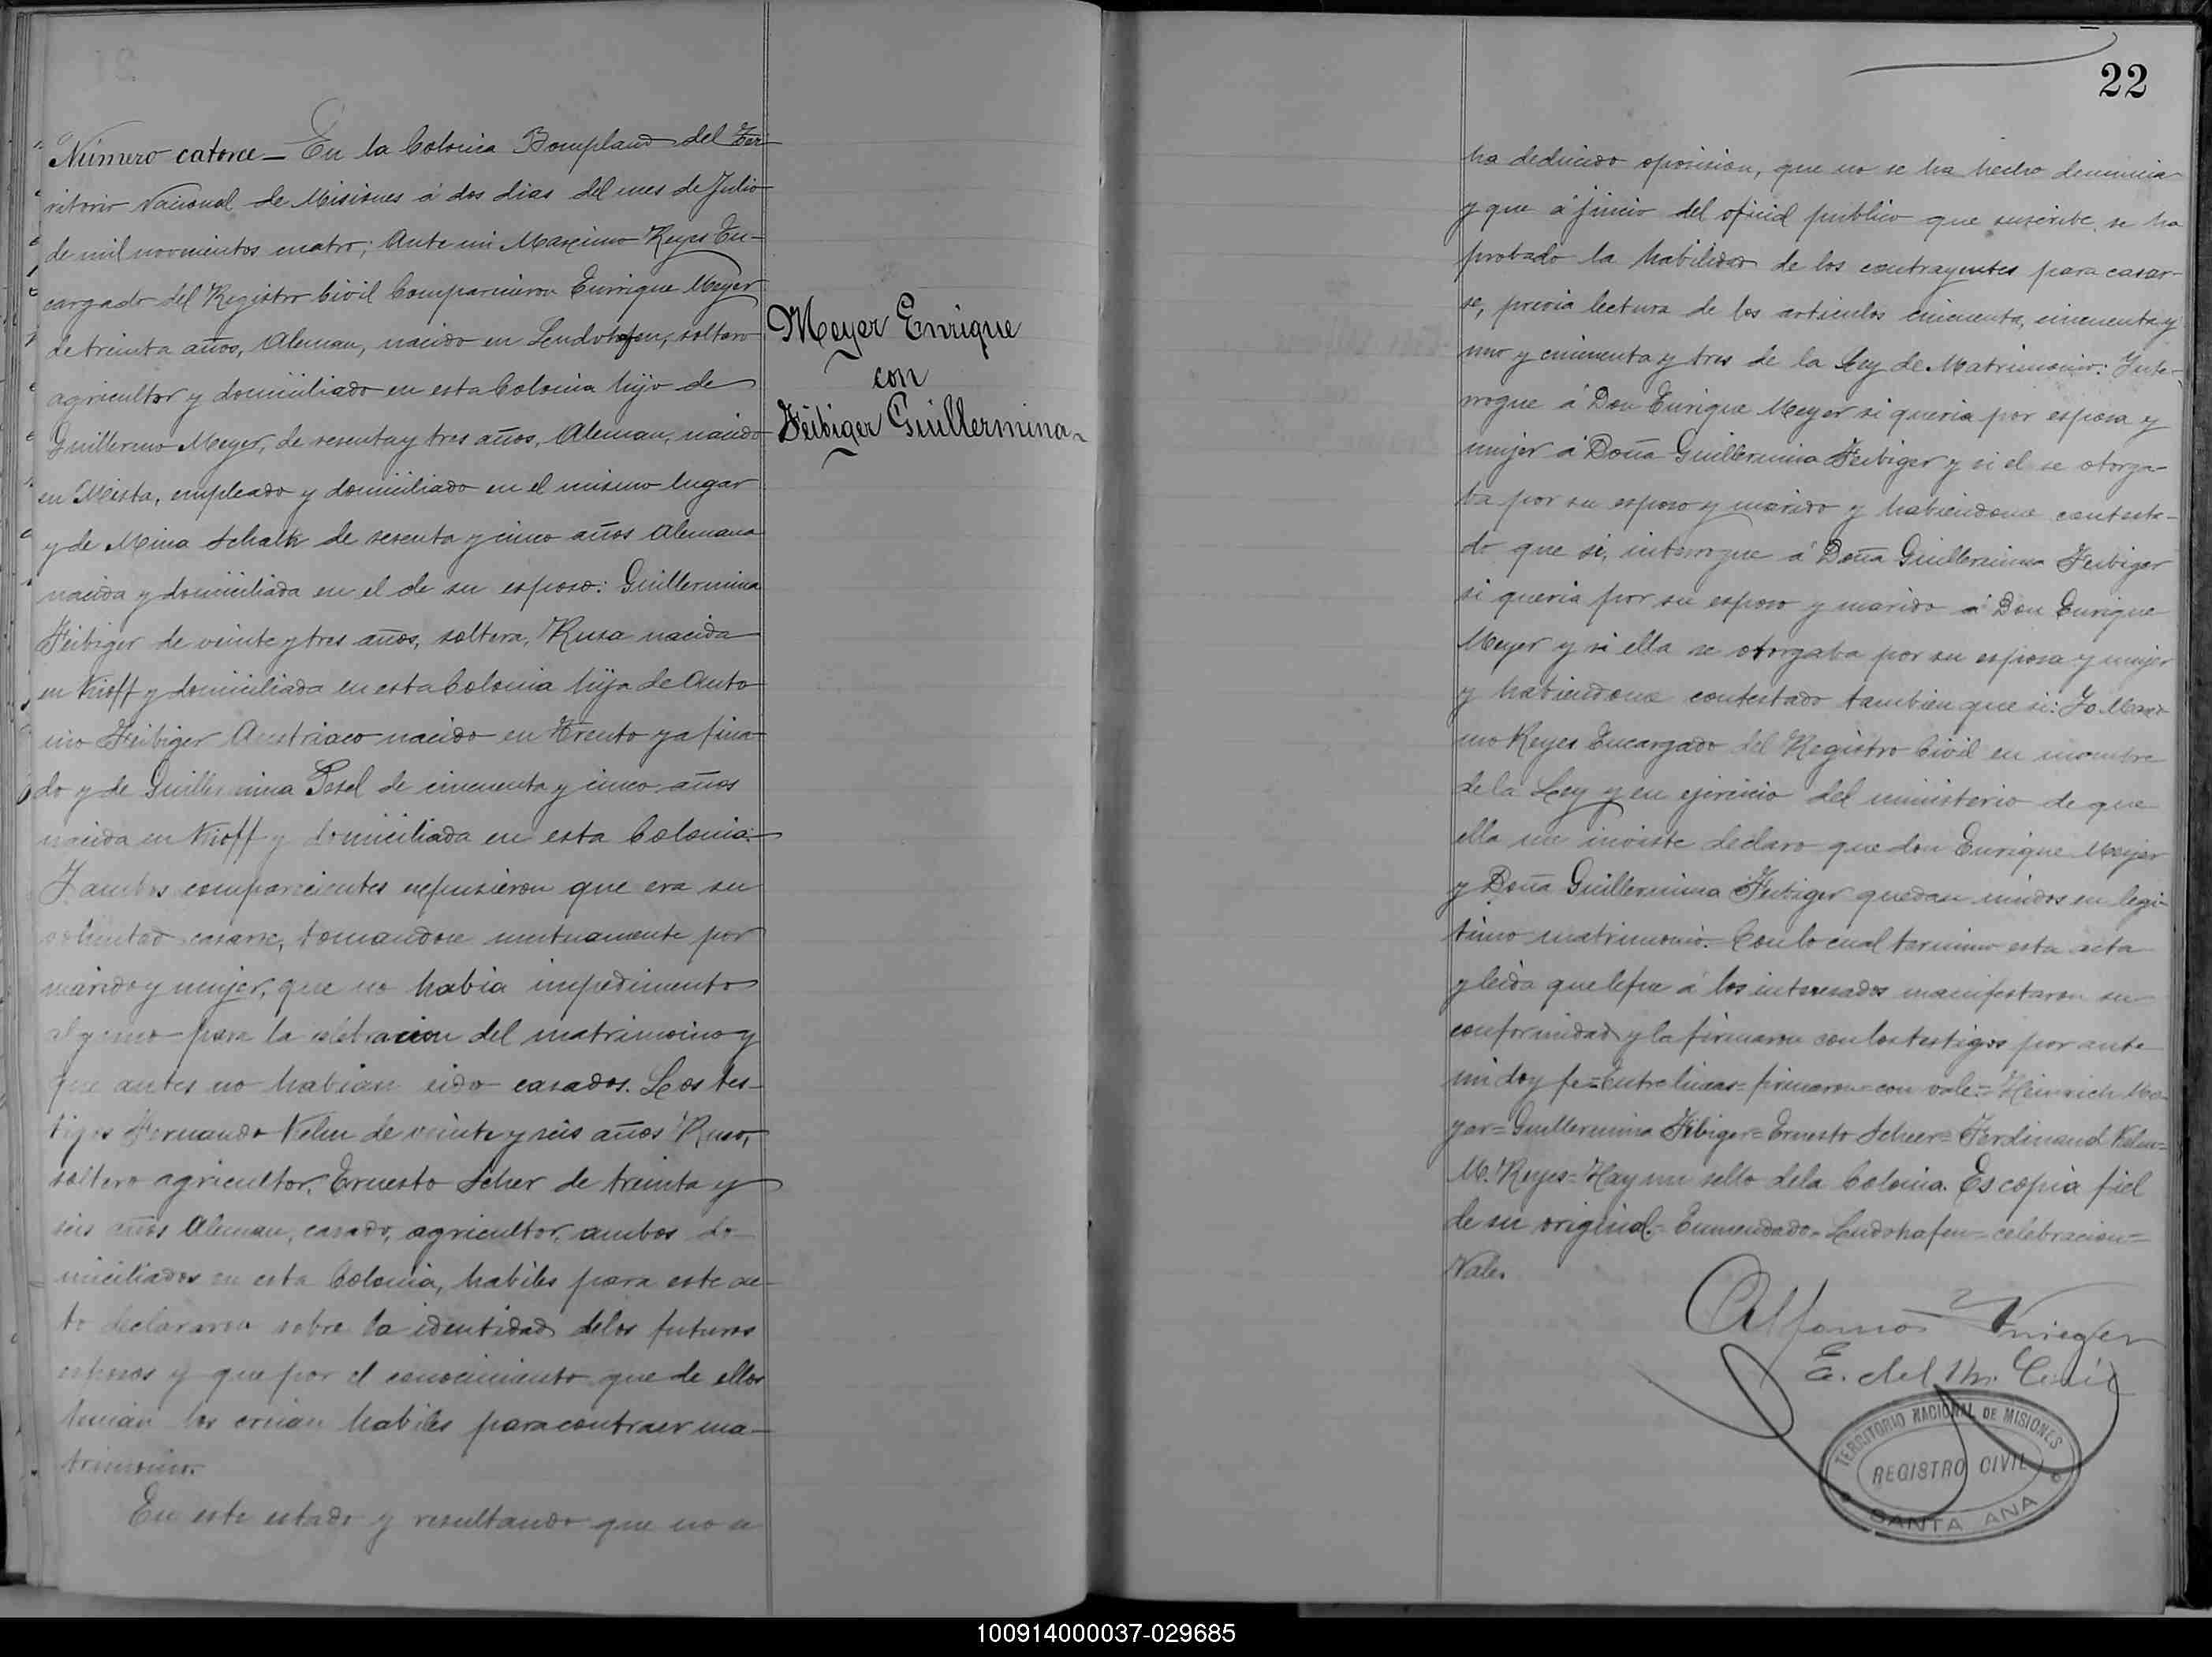 Número catorce — En la Colonia Bompland del Ter-
ritorio Nacional de Misiones á dos dias del mes de Julio
de mil novecientos cuatro; Ante mi Maximo Reyes En-
cargado del Registro Civil Comparecieron Enrique Meyer
de treinta años, Aleman, nacido en Lendohafen, soltero
agricultor y domiciliado en esta Colonia hijo de
Guillermo Meyer, de sesenta y tres años, Aleman, nacido
en Mesta, empleado y domiciliado en el mismo lugar
y de Mina Schalk de sesenta y cinco años Alemana
nacida y domiciliada en el de su esposo: Guillermina
Feibiger de veinte y tres años, soltera, Rusa nacida
en Kioff y domiciliada en esta Colonia hija de Anto-
nio Feibiger Austriaco nacido en Trento ya fina-
do y de Guillermina Pesel de cincuenta y cinco años
nacida en Kioff y domiciliada en esta Colonia.—
Y ambos comparecientes expusieron que era su
voluntad casarse, tomandose mutuamente por
marido y mujer, que no habia impedimento
alguno para la celebracion del matrimonio y
que antes no habian sido casados. Los tes-
tigos Fernando Kelm de veinte y seis años Ruso,
soltero agricultor, Ernesto Scher de treinta y
seis años Aleman, casado, agricultor, ambos do-
miciliados en esta Colonia, habiles para este ac-
to declararon sobre la identidad delos futuros
esposos y que por el conocimiento que de ellos
tenian los creian habiles para contraer ma-
trimonio.
En este estado y resultando que no se
Meyer Enrique
con
Feibiger Guillermina
22
ha deducido oposision, que no se ha hecho denuncia
y que á juicio del oficial publico que suscribe, se ha
probado la habilidad de los contrayentes para casar-
se, previa lectura de los articulos cincuenta, cincuenta y
uno y cincuenta y tres de la Ley de Matrimonio: Inte-
rrogue á Don Enrique Meyer si queria por esposa y
mujer á Doña Guillermina Feibiger y si el se otorga-
ba por su esposo y marido y habiendome contesta-
do que si, interrogue á Doña Guillermina Feibiger
si queria por su esposo y marido á Don Enrique
Meyer y si ella se otorgaba por su esposa y mujer
y habiendome contestado tambien que si: Yo Maxi-
mo Reyes Encargado del Registro Civil en nombre
de la Ley y en ejercicio del ministerio de que
ella me inviste declaro que don Enrique Meyer
y Doña Guillermina Feibiger quedan unidos en legi-
timo matrimonio. Con lo cual termino esta acta
y leida que le fue á los interesados manifestaron su
conformidad y la firmaron con los testigos por ante
mi doy fe=Entre lineas=firmaron=con vale.=Heinrich Me-
yer=Guillermina Fibiger=Ernesto Scheer=Ferdinand Kelm=
M. Reyes=Hay un sello dela Colonia. Es copia fiel
de su original.=Enmendado=Lendohafen=celebracion=
Vale.
Alfonso Krieger
E. del R. Civil
TERRITORIO NACIONAL DE MISIONES
REGISTRO CIVIL
SANTA ANA
100914000037-029685